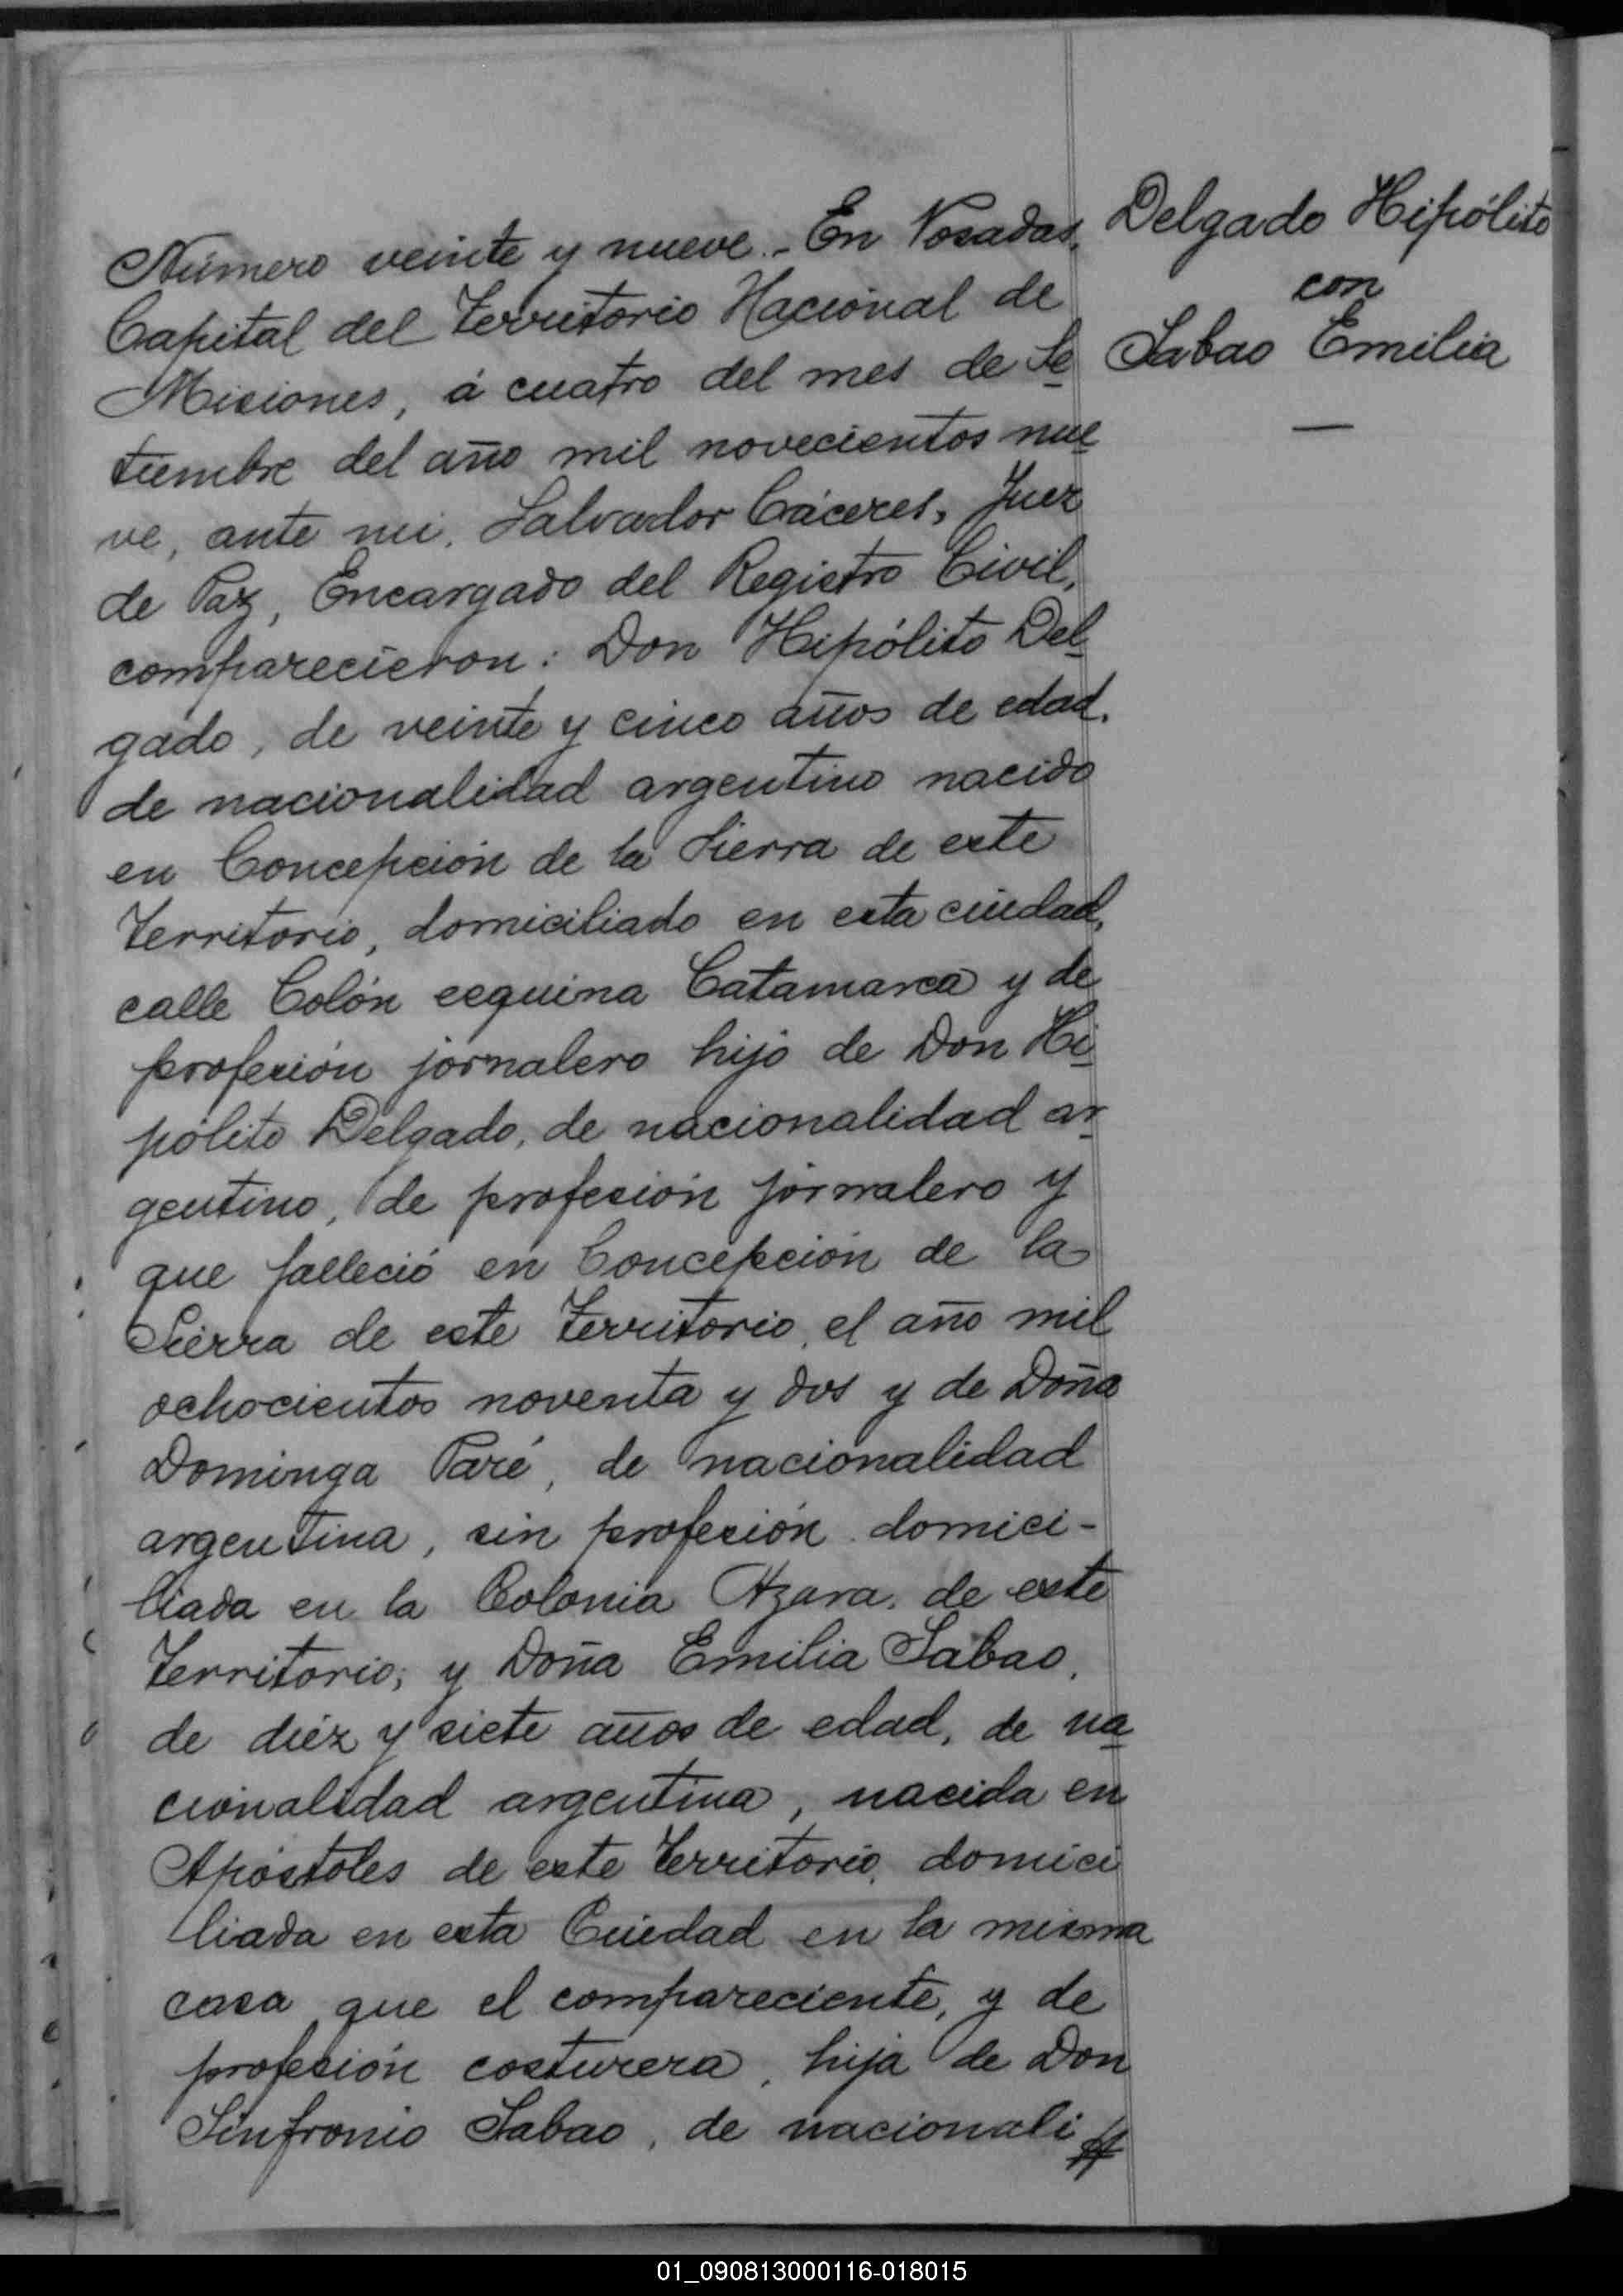 Número veinte y nueve.- En Posadas,
Capital del Territorio Nacional de
Misiones, á cuatro del mes de Se
tiembre del año mil novecientos nue
ve, ante mi, Salvador Cáceres, Juez
de Paz, Encargado del Registro Civil,
comparecieron: Don Hipólito Del
gado, de veinte y cinco años de edad,
de nacionalidad argentino nacido
en Concepción de la Sierra de este
Territorio, domiciliado en esta ciudad,
calle Colón esquina Catamarca y de
profesión jornalero hijo de Don Hi
pólito Delgado, de nacionalidad ar
gentino, de profesión jornalero y
que falleció en Concepción de la
Sierra de este Territorio, el año mil
ochocientos noventa y dos y de Doña
Dominga Paré, de nacionalidad
argentina, sin profesión domici-
liada en la Colonia Azara, de este
Territorio; y Doña Emilia Sabao,
de diéz y siete años de edad, de na
cionalidad argentina, nacida en
Apóstoles de este Territorio, domici
liada en esta Ciudad en la misma
casa que el compareciente, y de
profesión costurera, hija de Don
Sinfronio Sabao, de nacionali
Delgado Hipólito
con
Sabao Emilia
01_090813000116-018015